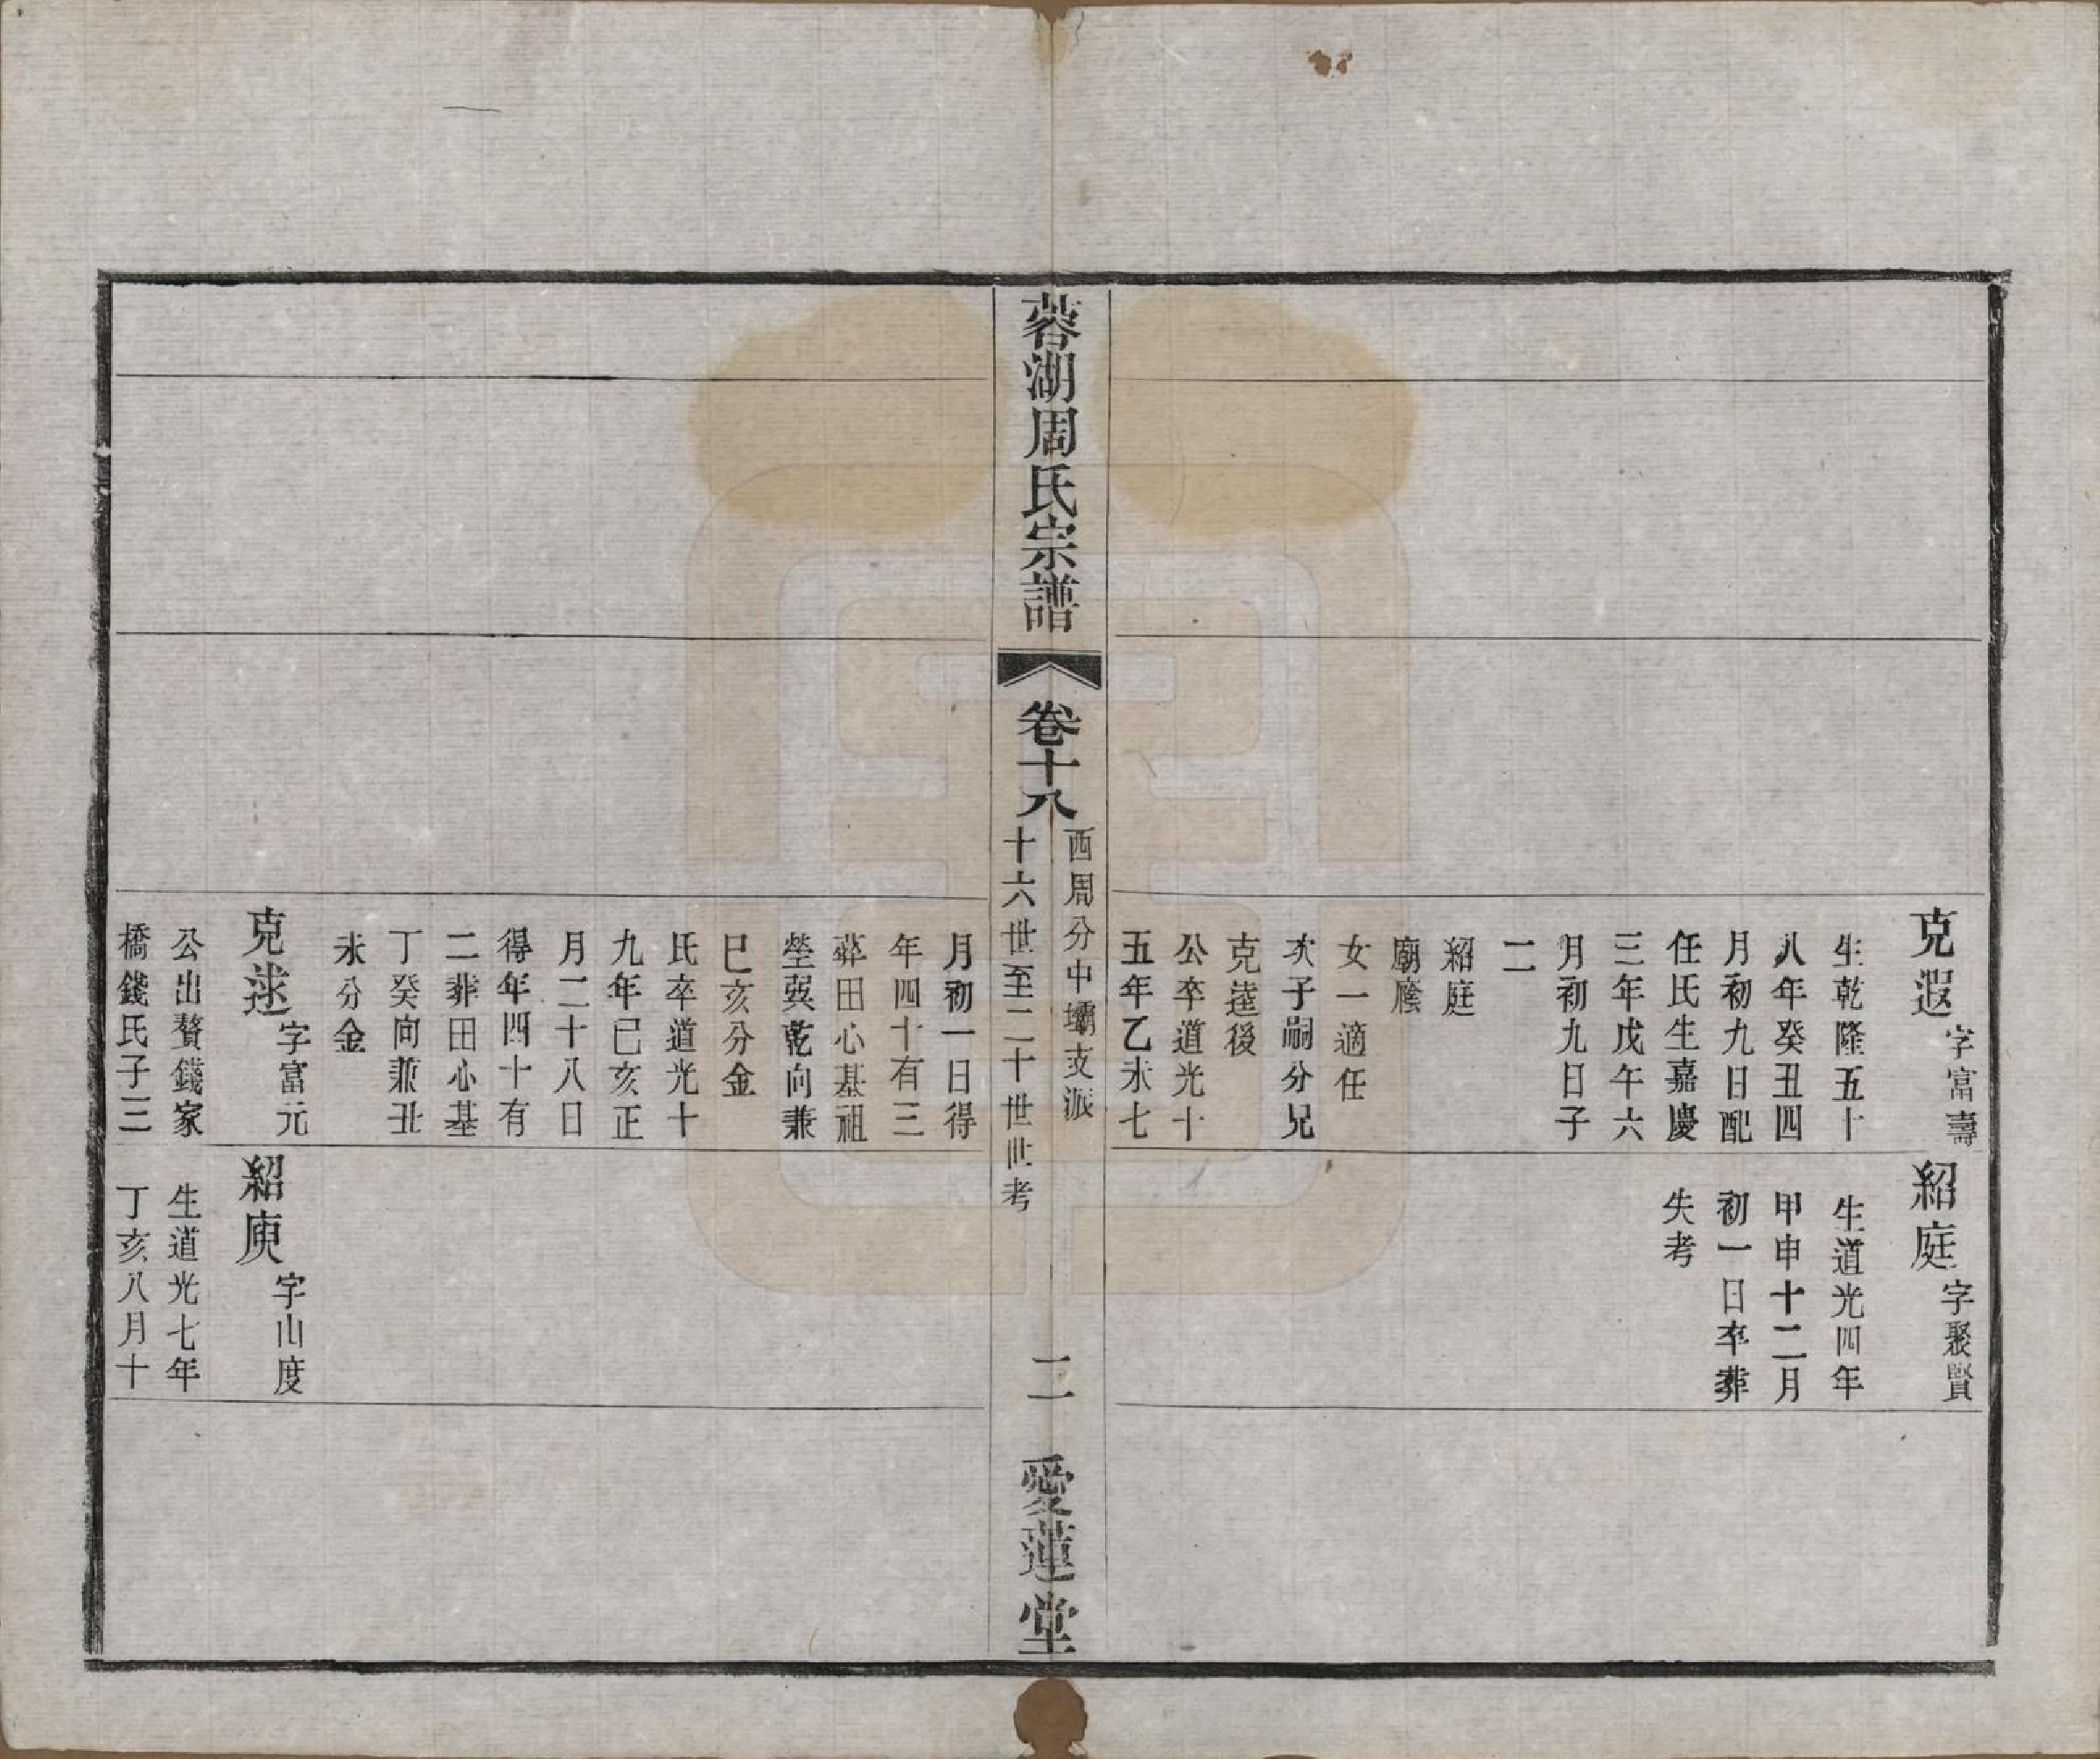 克遐字富壽
生乾隆五十
八年癸丑四
月初九日配
任氏生嘉慶
三年戊午六
月初九日子
二
紹庭
廟廕
女一適任
次子嗣分兄
克逵後
公卒道光十
五年乙未七
紹庭字聚賢
生道光四年
甲申十二月
初一日卒葬
失考
蓉湖周氏宗譜
卷十八
西周分中壩支派
十六世至二十世世考
二
愛蓮堂
月初一日得
年四十有三
葬田心基祖
塋巽乾向兼
巳亥分金
氏卒道光十
九年己亥正
月二十八日
得年四十有
二葬田心基
丁癸向兼丑
未分金
克逑字富元
公出贅錢家
橋錢氏子三
紹庾字山度
生道光七年
丁亥八月十